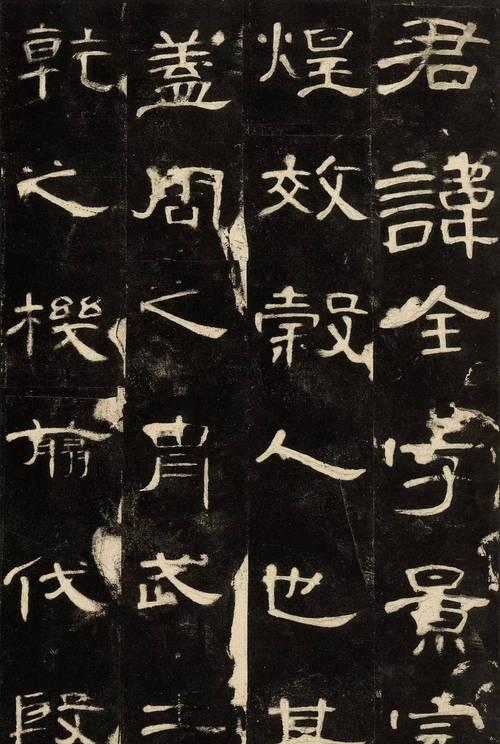 君諱全字景完
煌效穀人也其
蓋周之胄武王
乾之機翦伐殷